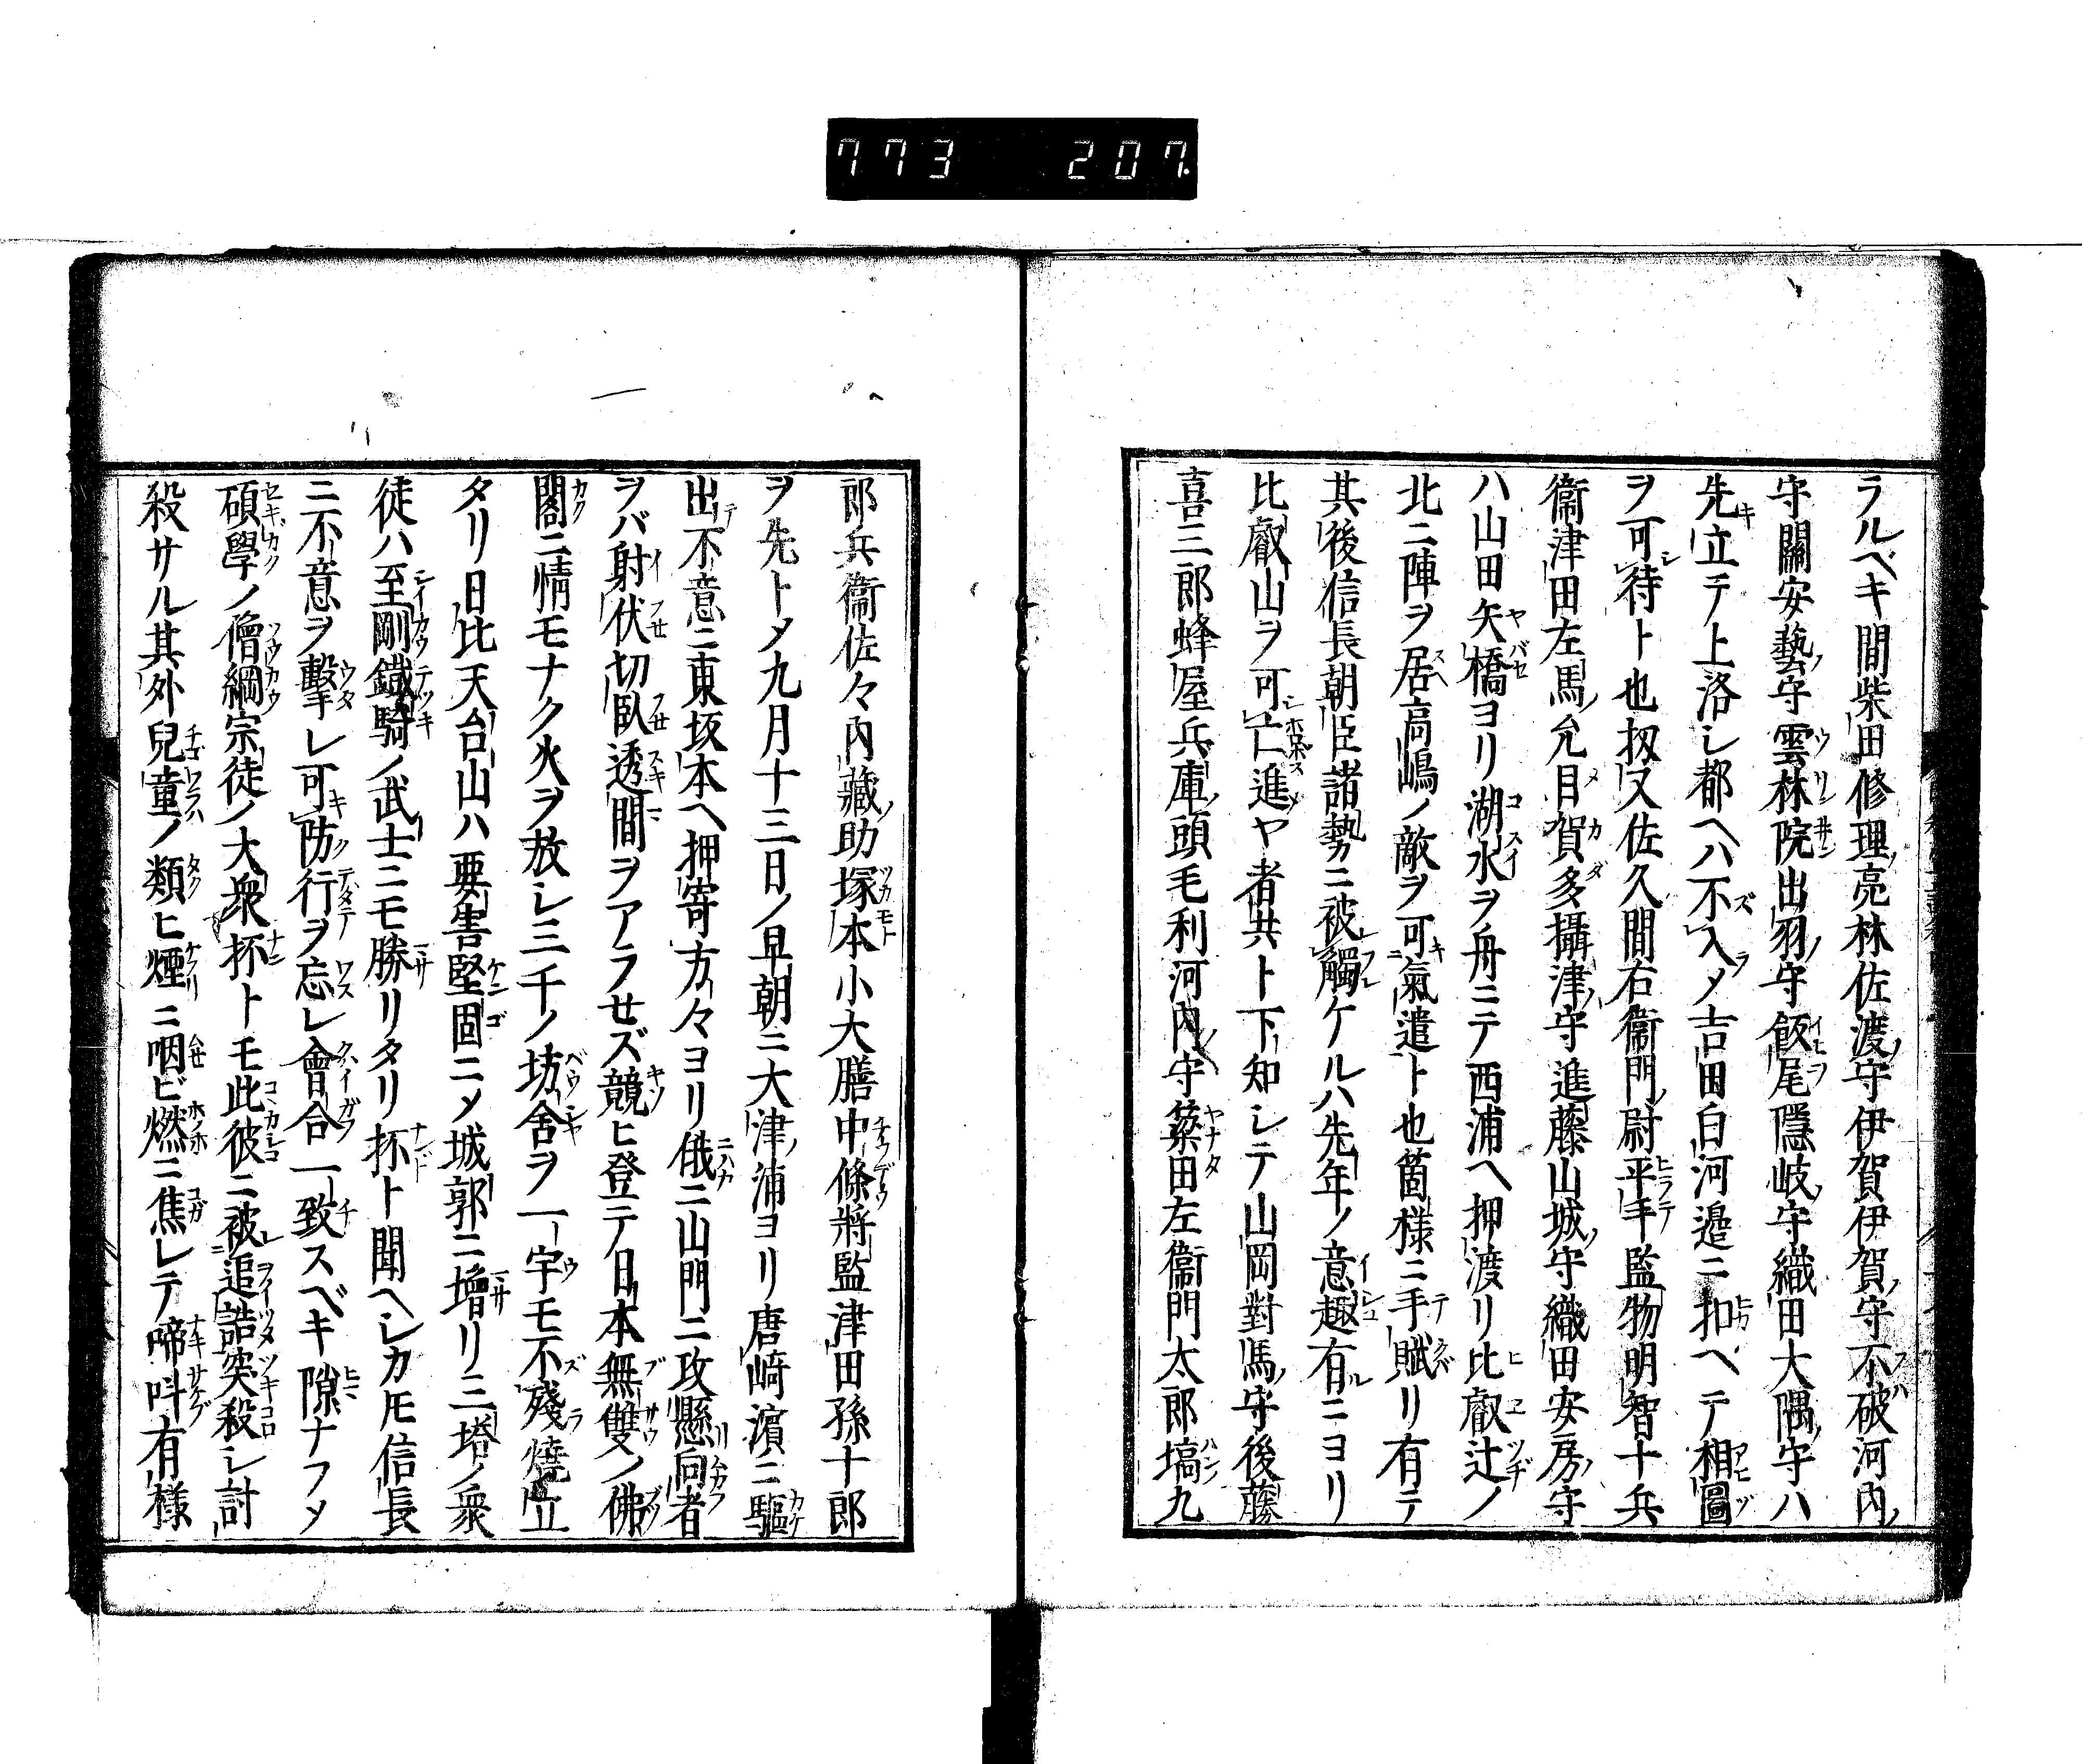 773 207
ラルベキ間柴田修理亮林佐渡守伊賀伊賀守不破河内
守關安藝守雲林院出羽守飯尾隱岐守織田大隅守ハ
先立テ上洛シ都ヘハ不入メ吉田白河邉ニ扣ヘテ相圖
ヲ可待ト也扨又佐久間右衞門尉平手監物明智十兵
衞津田左馬允目賀多攝津守進藤山城守織田安房守
ハ山田矢橋ヨリ湖水ヲ舟ニテ西浦ヘ押渡リ比叡辻ノ
北ニ陣ヲ居高嶋ノ敵ヲ可氣遣ト也箇樣ニ手賦リ有テ
其後信長朝臣諸勢ニ被觸ケルハ先年ノ意趣有ニヨリ
比叡山ヲ可亡進ヤ者共ト下知シテ山岡對馬守後藤
喜三郎蜂屋兵庫頭毛利河内守簗田左衞門太郎塙九
郎兵衞佐々内藏助塚本小大膳中條將監津田孫十郎
ヲ先トメ九月十三日ノ早朝ニ大津浦ヨリ唐﨑濵ニ驅
出不意ニ東坂本ヘ押寄方々ヨリ俄ニ山門ニ攻懸向者
ヲバ射伏切臥透間ヲアラセズ競ヒ登テ日本無雙ノ佛
閣ニ情モナク火ヲ放シ三千ノ坊舍ヲ一宇モ不殘燒立
タリ日比天台山ハ要害堅固ニメ城郭ニ増リ三塔ノ衆
徒ハ至剛鐵騎ノ武士ニモ勝リタリ抔ト聞ヘシカ𪜈信長
ニ不意ヲ擊レ可防行ヲ忘レ會合一致スベキ隙ナフメ
碩學ノ僧綱宗徒ノ大衆抔トモ此彼ニ被追詰突殺シ討
殺サル其外兒童ノ類ヒ煙ニ咽ビ燃ニ焦レテ啼呌有樣